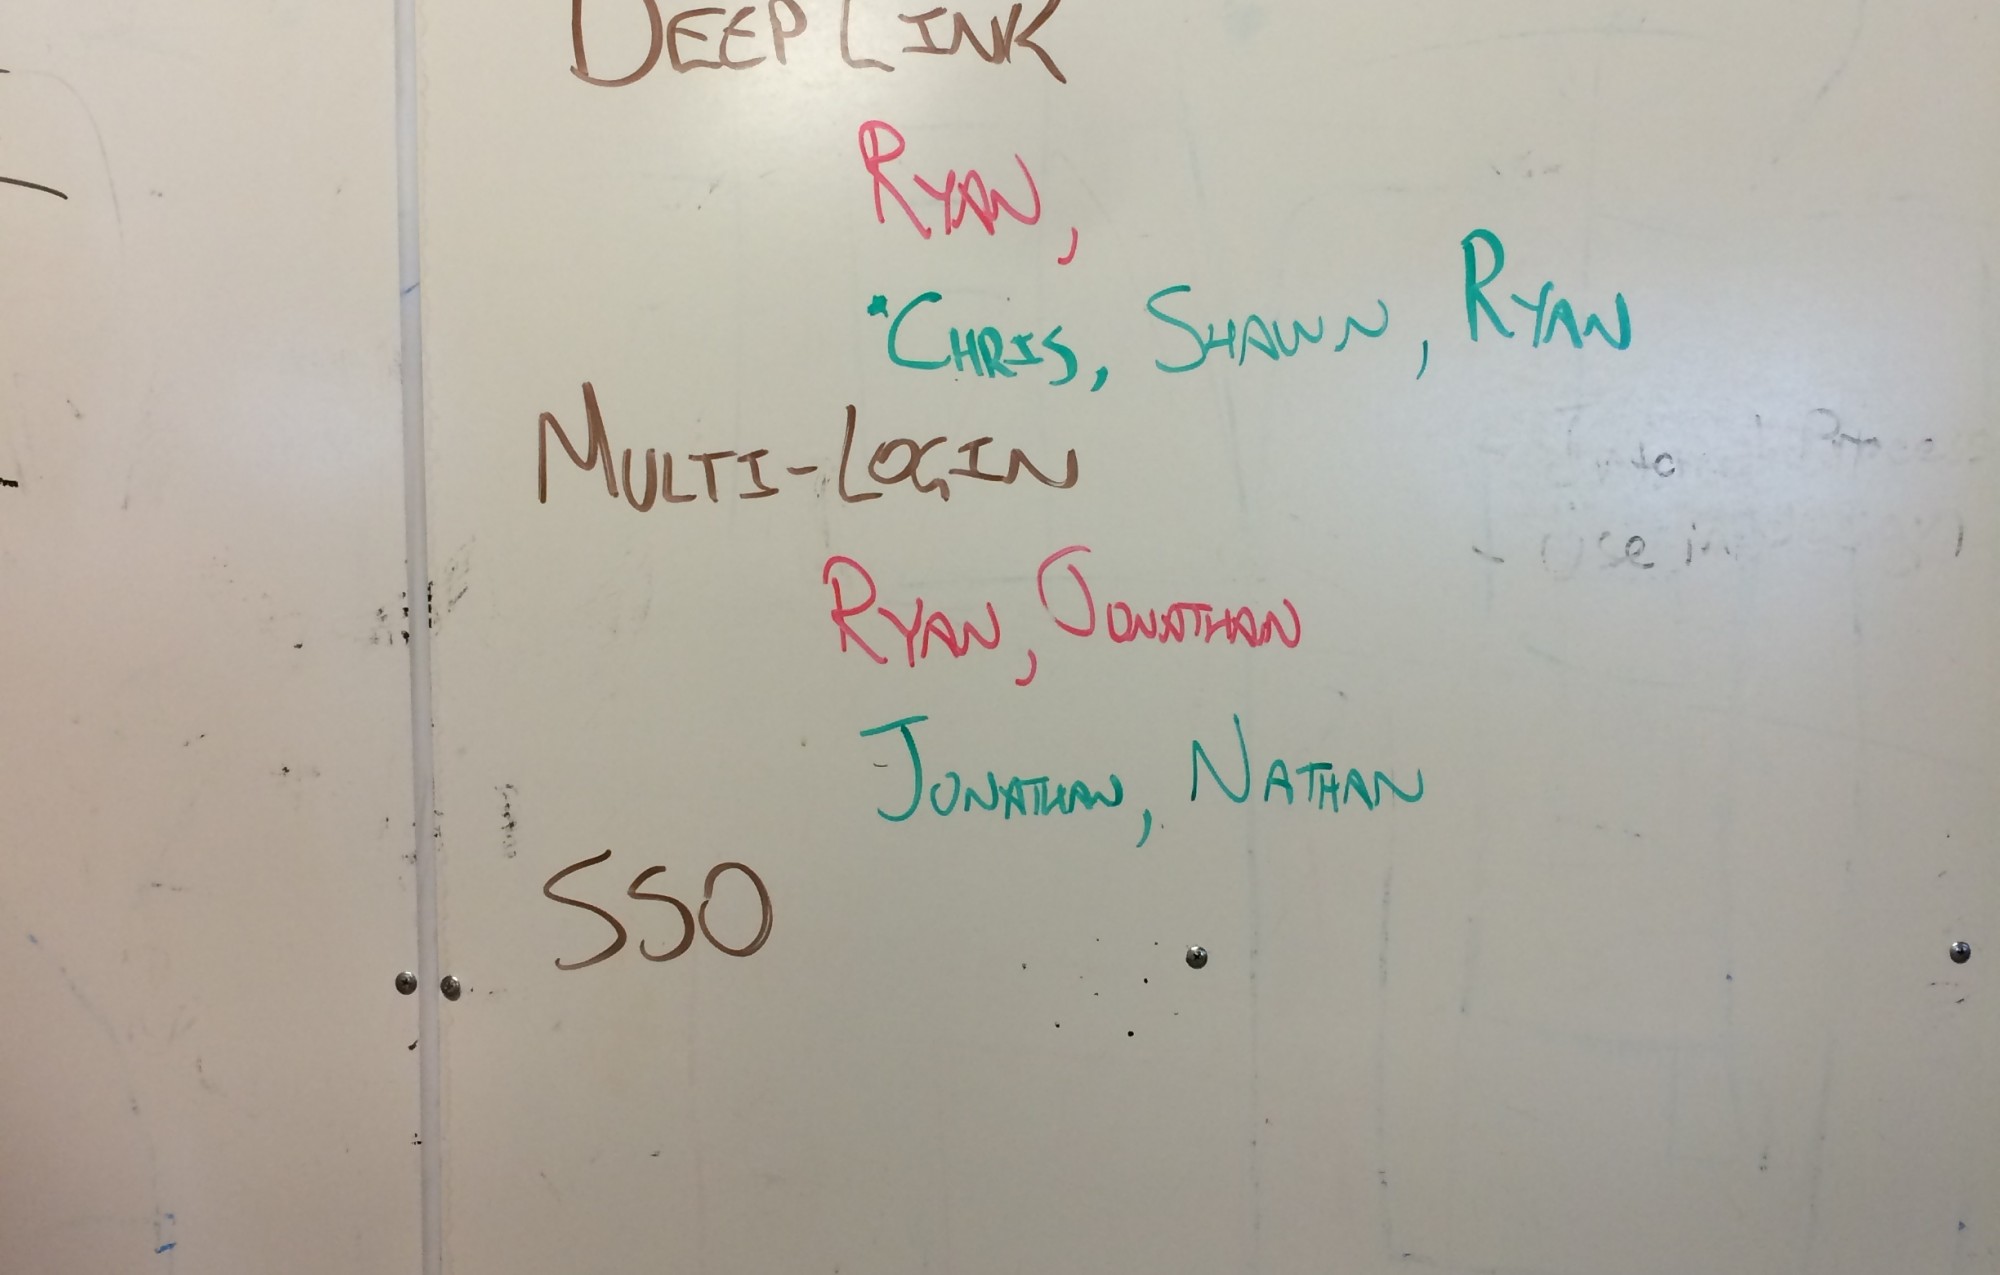 DEEP LINK
RYAN,
*CHRIS, SHAWN, RYAN
MULTI-LOGIN
RYAN, JONATHAN
JONATHAN, NATHAN
SSO
to
- Use in